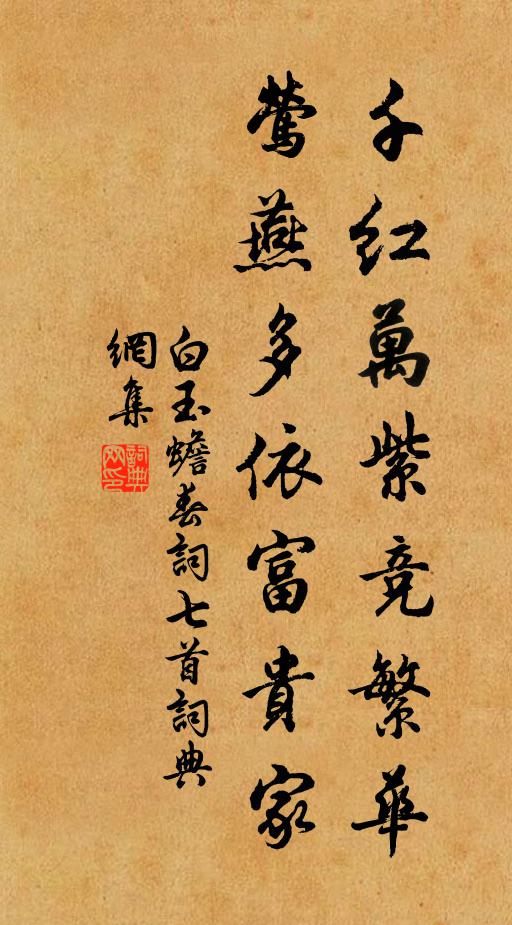 千红萬紫竞繁華
鶯燕多依富貴家
白玉蟾春詞七首詞典
網集
詞典
网印